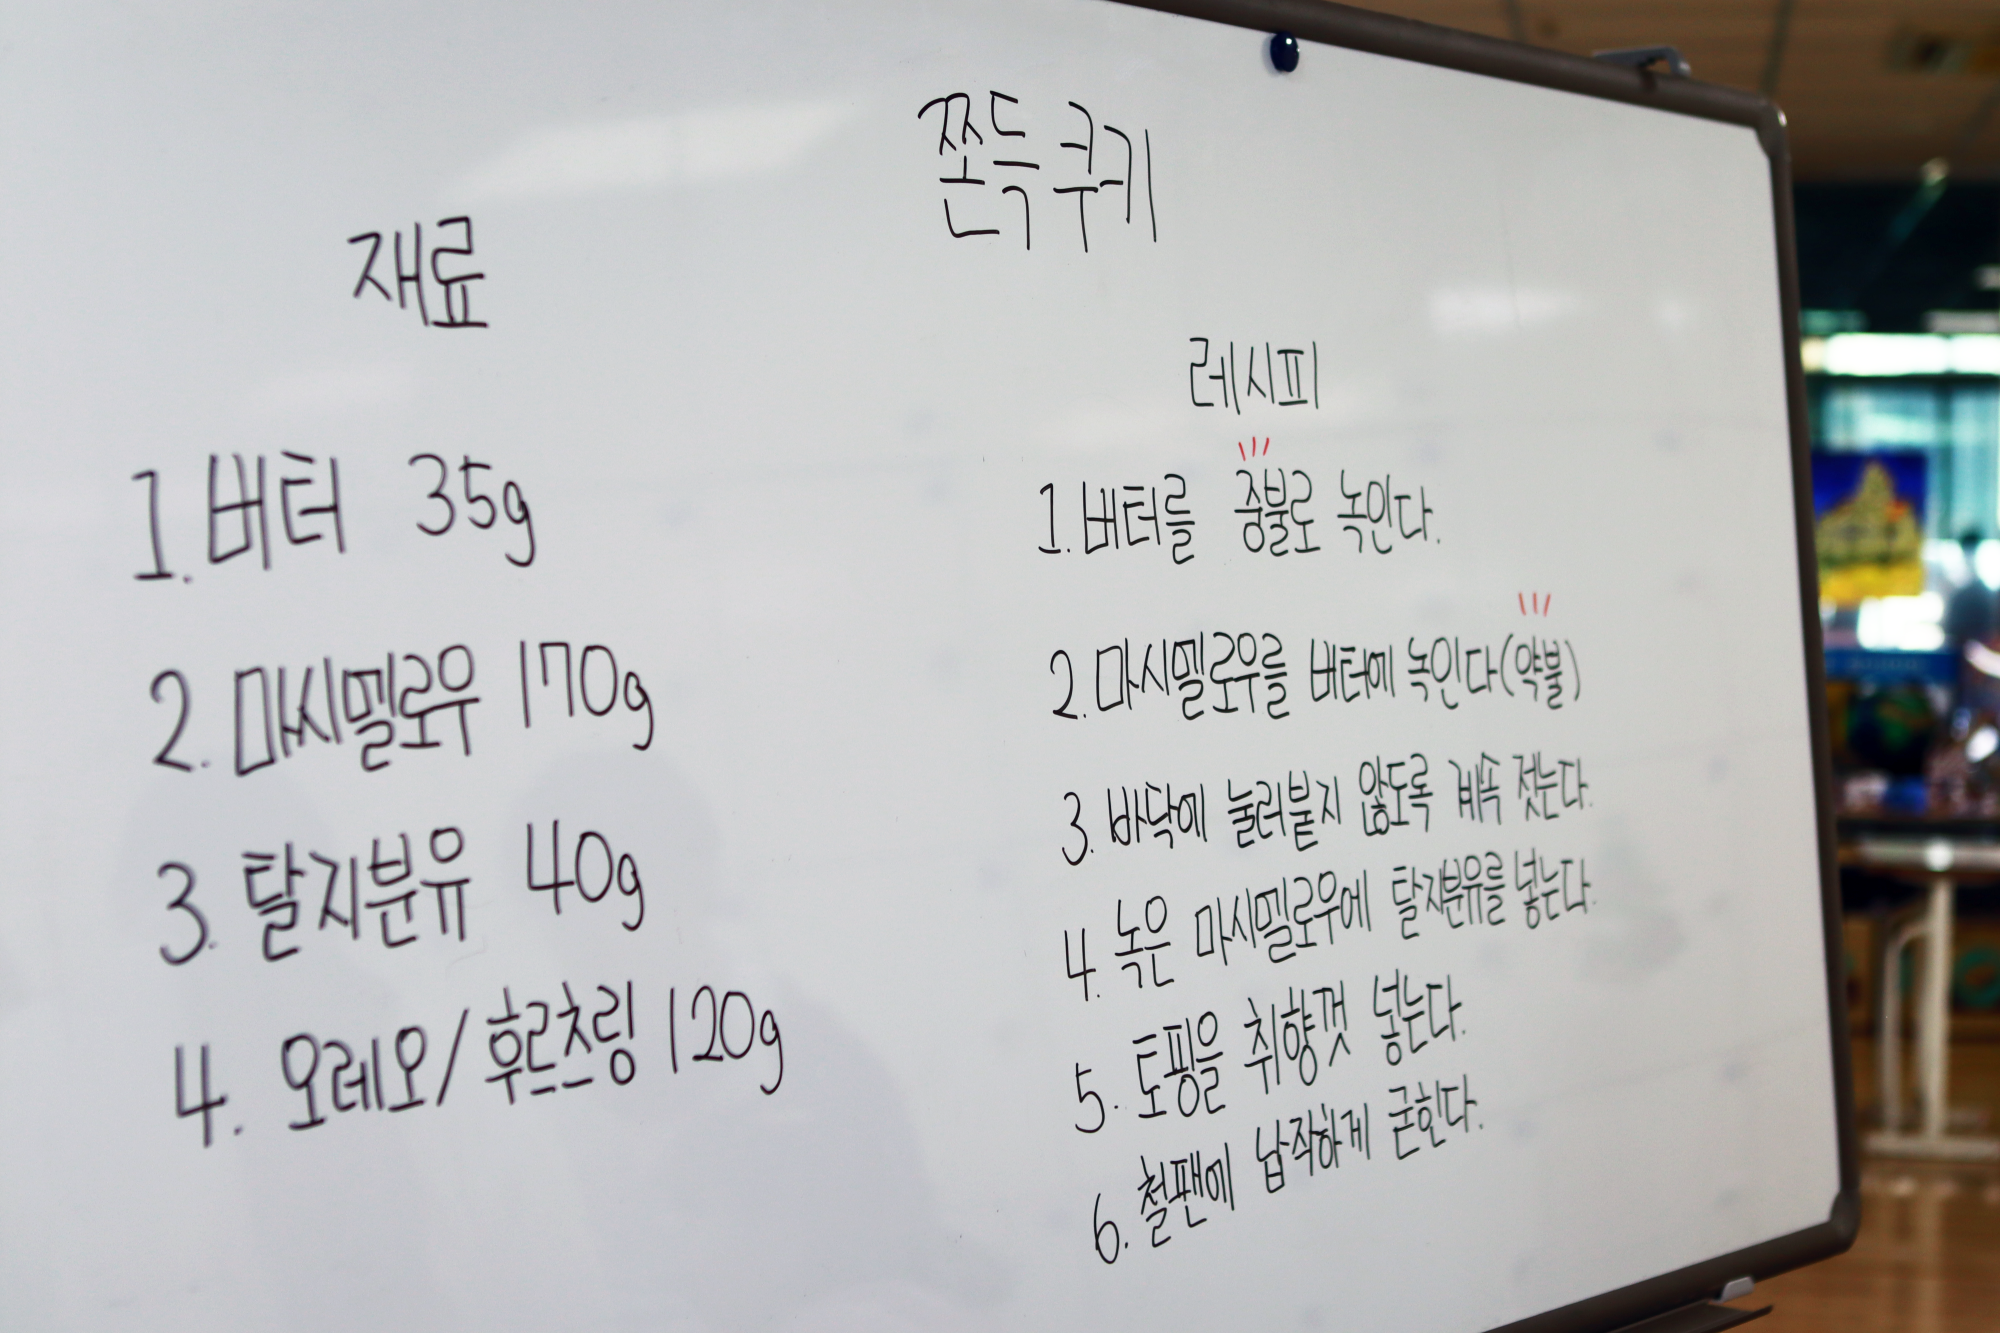 쫀득쿠키
재료
1. 버터 35g
2. 마시멜로우 170g
3. 탈지분유 40g
4. 오레오/후르츠링 120g
레시피
1. 버터를 중불로 녹인다.
2. 마시멜로우를 버터에 녹인다(약불)
3. 바닥에 눌러붙지 않도록 계속 젓는다.
4. 녹은 마시멜로우에 탈지분유를 넣는다.
5. 토핑을 취향껏 넣는다.
6. 철팬에 납작하게 굳힌다.